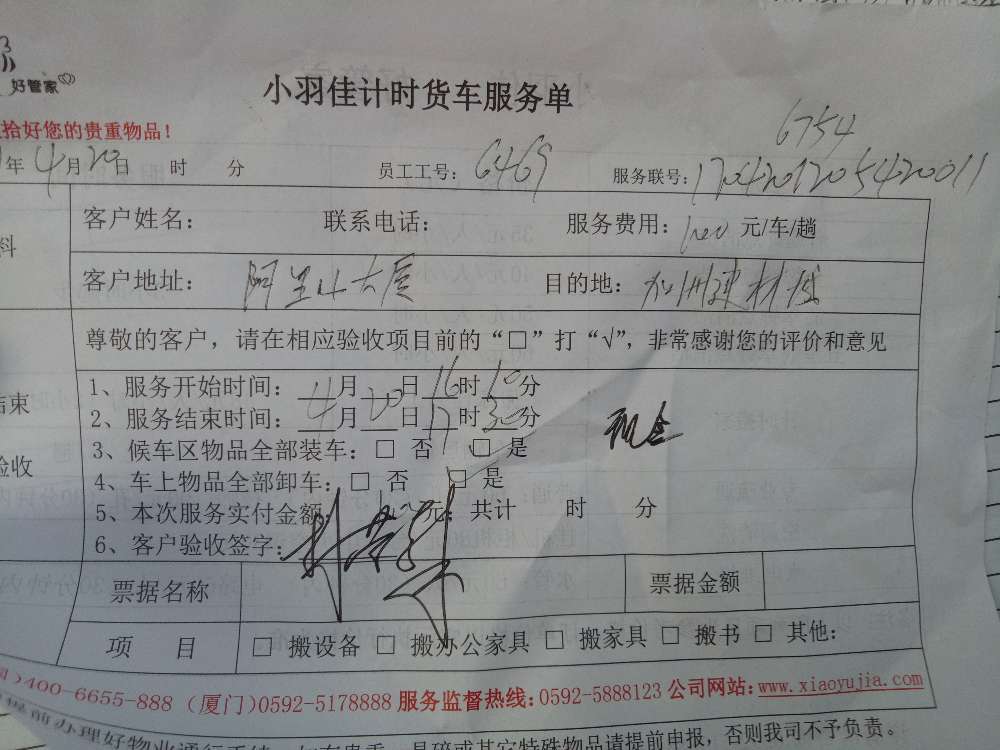 好管家
小羽佳计时货车服务单
拾好您的贵重物品！
6754
年4月20日 时 分 员工工号：6469 服务联号：17042017205420011
料 客户姓名： 联系电话： 服务费用： 元/车/趟
客户地址：阿里山大厦 目的地：加洲建材城
尊敬的客户，请在相应验收项目前的“□”打“√”，非常感谢您的评价和意见
1、服务开始时间：4月20日16时10分
结束 2、服务结束时间：4月20日17时30分
现金
3、候车区物品全部装车：□ 否 □ 是
验收 4、车上物品全部卸车：□ 否 □ 是
5、本次服务实付金额： 元；共计 时 分
6、客户验收签字：
票据名称 票据金额
项 目 □ 搬设备 □ 搬办公家具 □ 搬家具 □ 搬书 □ 其他：
)400-6655-888 (厦门)0592-5178888 服务监督热线：0592-5888123 公司网站：www.xiaoyujia.com
提前办理好物业通行手续，如有贵重、易碎或其它特殊物品请提前申报，否则我司不予负责。